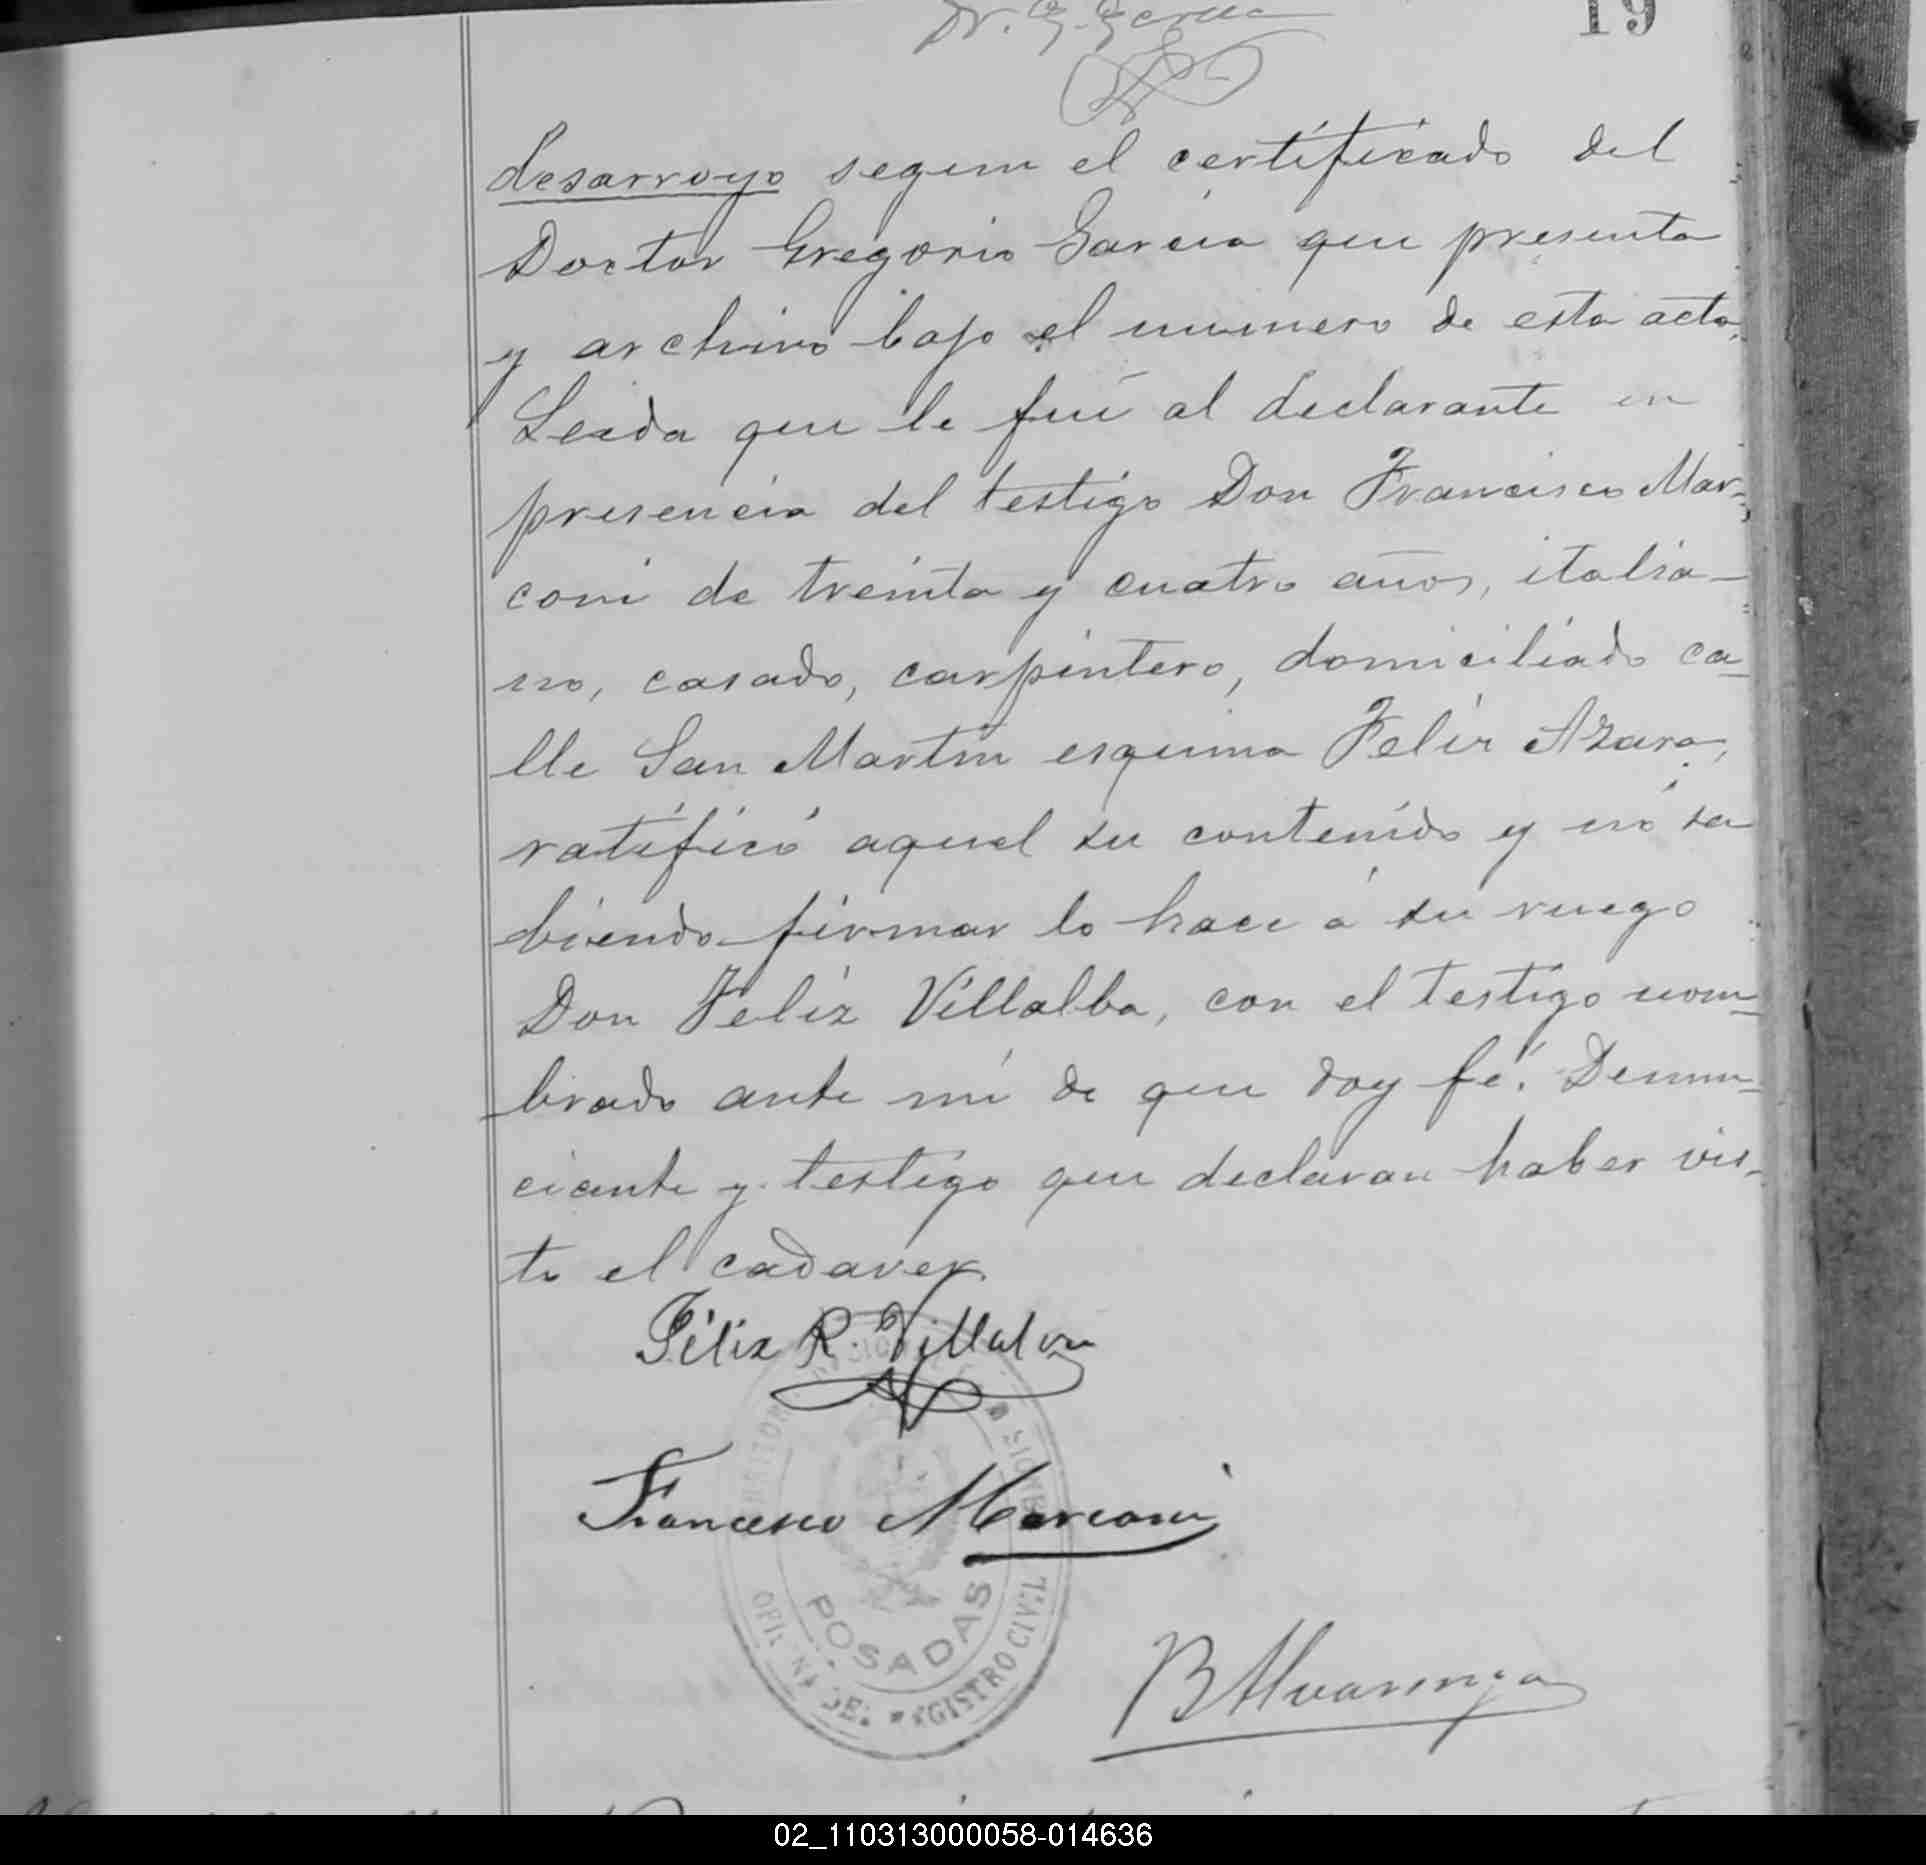 Dr. G. Garcia
19
desarroyo segun el certificado del
Doctor Gregorio Garcia que presenta
y archivo bajo el numero de esta acta.
Leida que le fué al declarante en
presencia del testigo Don Francisco Mar-
coni de treinta y cuatro años, italia-
no, casado, carpintero, domiciliado ca-
lle San Martin esquina Felix Azara,
ratificó aquel su contenido y nó sa
biendo firmar lo hace á su ruego
Don Feliz Villalba, con el testigo nom-
brado ante mi de que doy fé. Denun-
ciante y testigo que declaran haber vis-
to el cadaver.
Féliz R. Villalva
Francesco Marconi
POSADAS
OFICINA DEL REGISTRO CIVIL
B Alvarenga
02_110313000058-014636